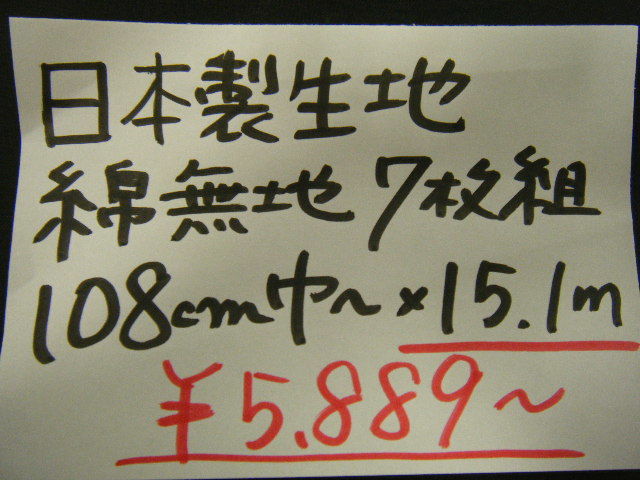 日本製生地
綿無地7枚組
108cm巾~×15.1m
¥5.889~